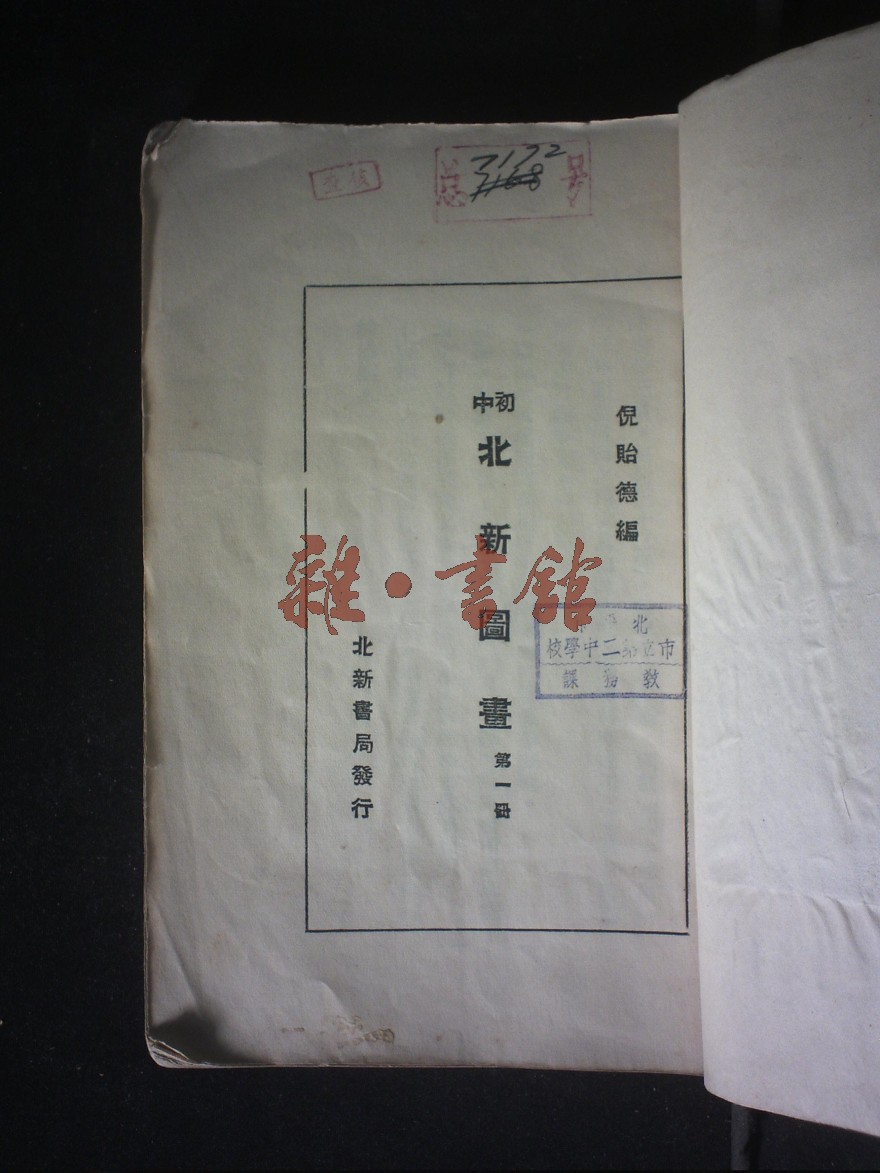 總 號
7172
7168
倪貽德編
初中
北新圖畫 第一冊
北新書局發行
雜·書館
市立第二中學校
教務課